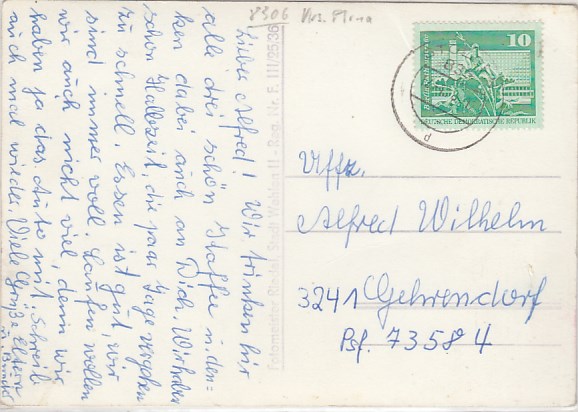 8306
Lieber Alfred! Wir trinken hir
alle drei schön Kaffee u. den-
ken dabei auch an Dich. Wir haben
schon Halbzeit, die paar Tage vergehen
zu schnell. Essen ist gut, wir
sind immer voll. Laufen wollen
wir auch nicht viel, denn wir
haben ja das Auto mit. Schreib
auch mal wieder Viele Grüße Eltern
u. Bruder
Fotomeister Riedel, Stadt Wehlen II-Reg. Nr. E 111/25/36
10
DEUTSCHE DEMOKRATISCHE REPUBLIK
Uffz.
Alfred Wilhelm
3241 Gehrendorf
Psf. 73584